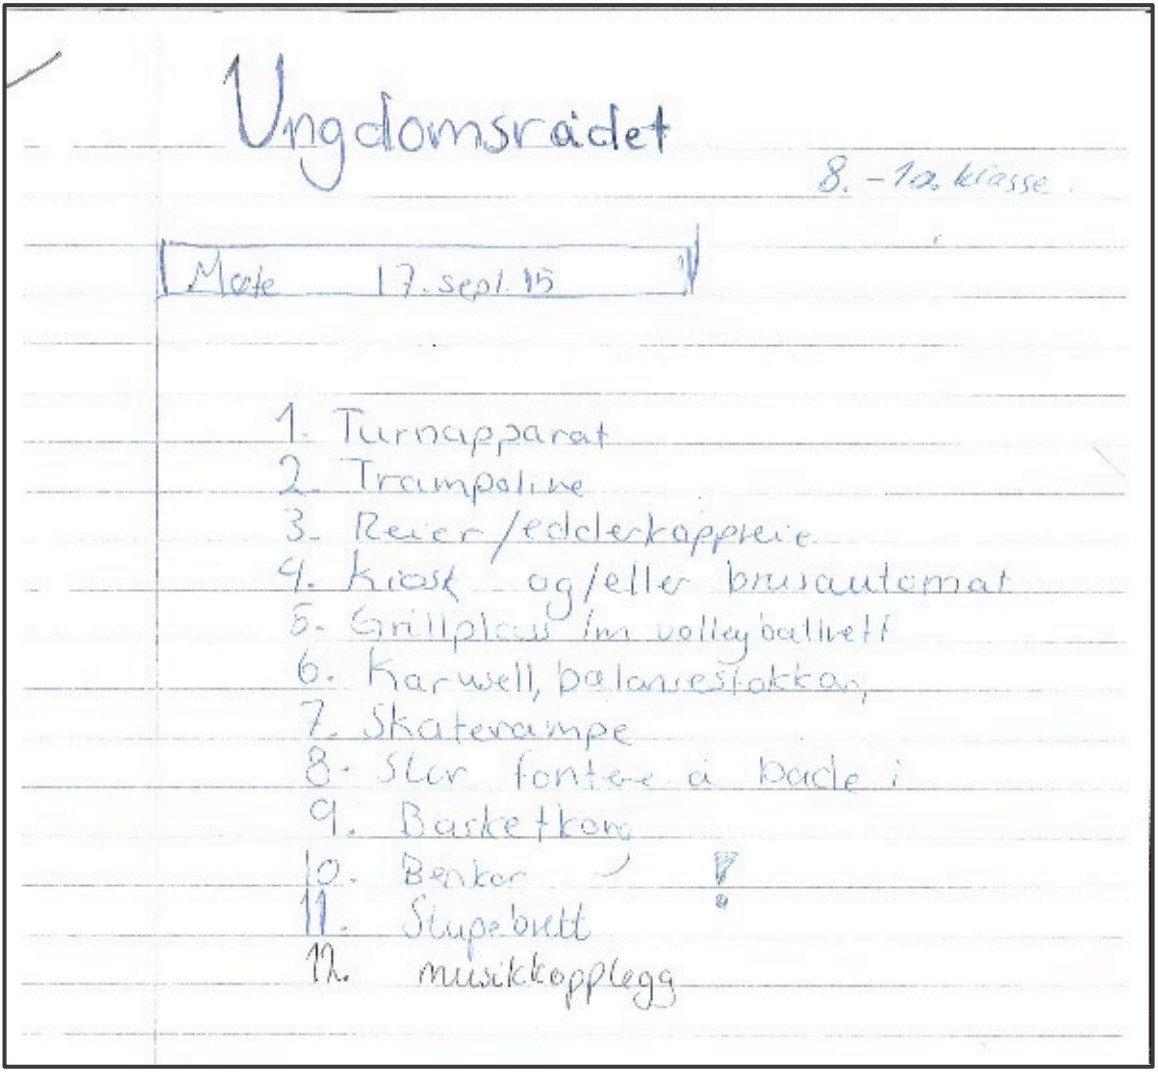 Ungdomsrådet
8. - 10. klasse
Møte 17. sept. 15
1. Turnapparat
2. Trampoline
3. Reier/edderkoppreie
4. Kiosk og/eller brusautomat
5. Grillplass im volleyballnett
6. Karusell, balansestokkar,
7. Skaterampe
8. Stor fontene å bade i
9. Basketkorg
10. Benkar !
11. Stupebrett
12. musikkopplegg